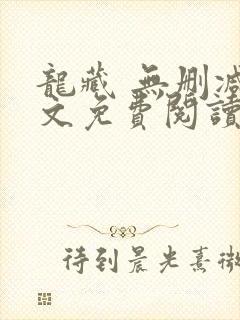 龍藏 無刪減
文免費閱讀
待到晨光熹微